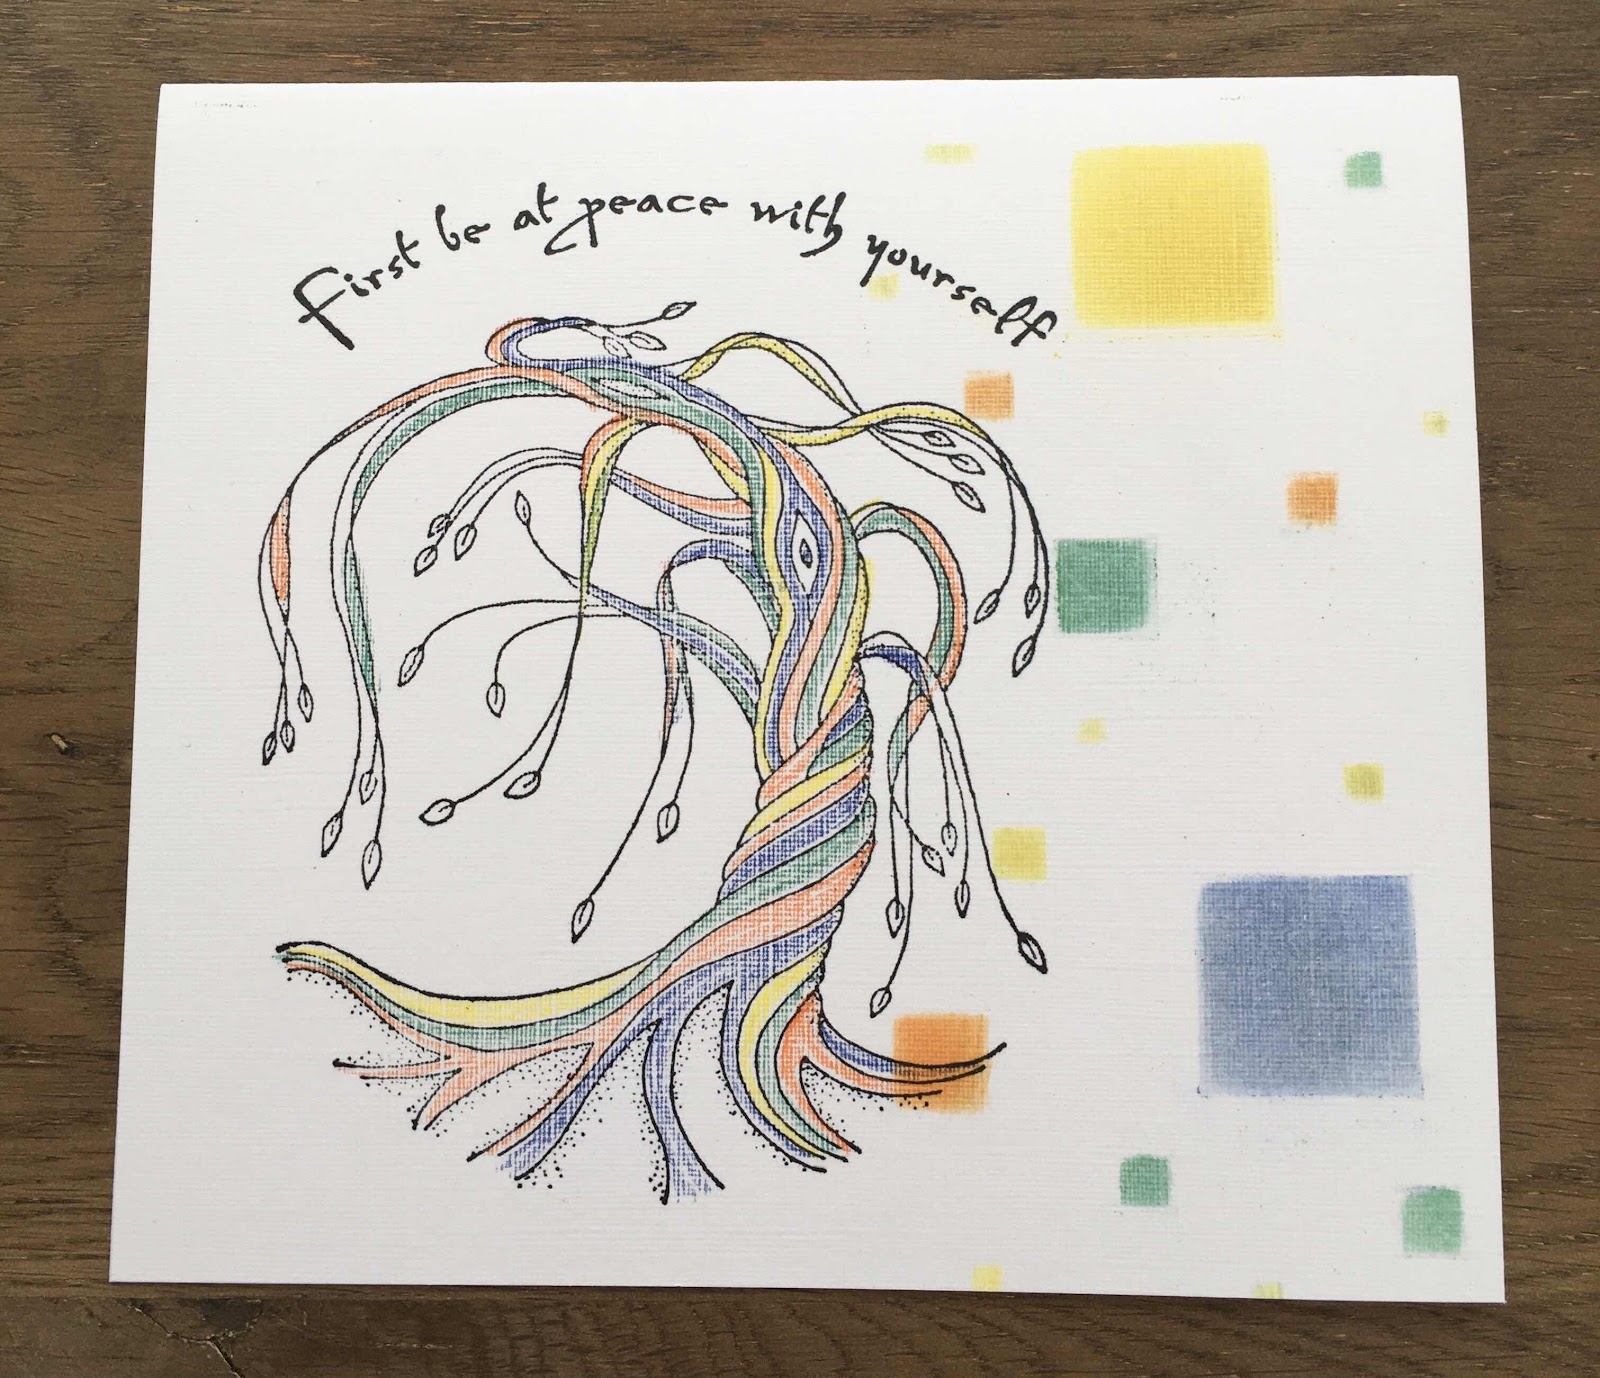 First be at peace with yourself